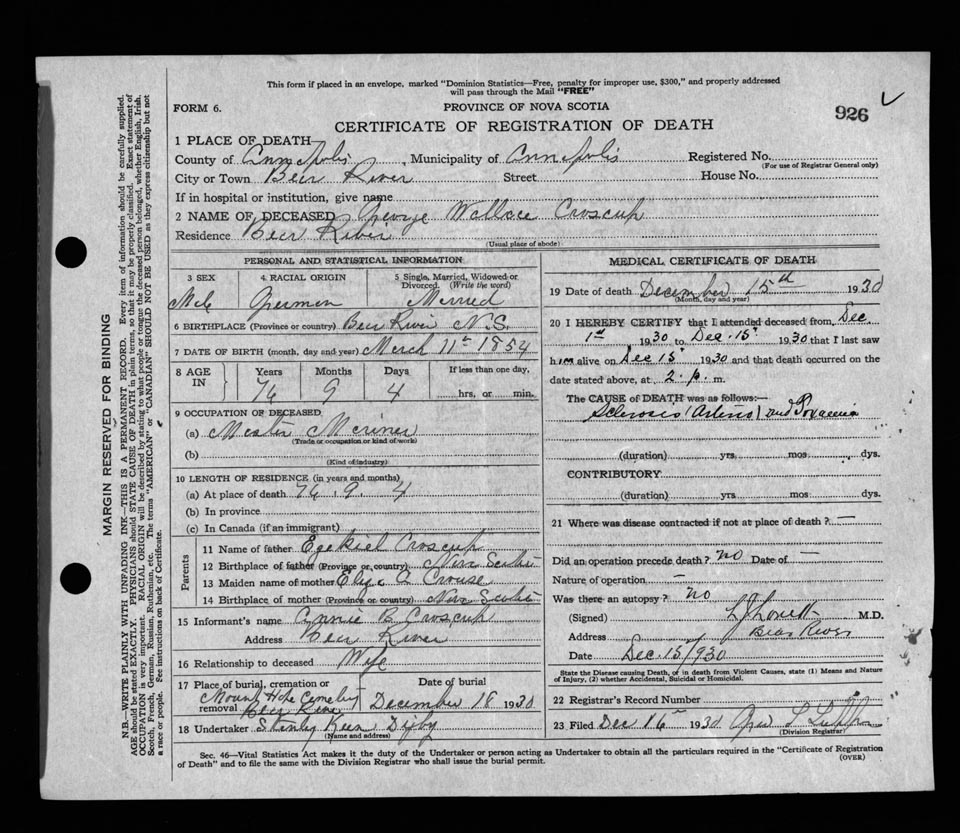 This form if placed in an envelope, marked "Dominion Statistics—Free, penalty for improper use, $300," and properly addressed
will pass through the Mail "FREE"
FORM 6.
PROVINCE OF NOVA SCOTIA
926
CERTIFICATE OF REGISTRATION OF DEATH
1 PLACE OF DEATH
County of Annapolis, Municipality of Annapolis Registered No.
(For use of Registrar General only)
City or Town Bear River Street House No.
If in hospital or institution, give name
2 NAME OF DECEASED George Wallace Croscup
Residence Bear River
(Usual place of abode)
PERSONAL AND STATISTICAL INFORMATION
3 SEX 4 RACIAL ORIGIN 5 Single, Married, Widowed or
Divorced. (Write the word)
Male German Married
6 BIRTHPLACE (Province or country) Bear River N.S.
7 DATE OF BIRTH (month, day and year) March 11th 1854
8 AGE IN Years Months Days If less than one day,
76 9 4 hrs. or min.
9 OCCUPATION OF DECEASED
(a) Master Mariner
(Trade or occupation or kind of work)
(b)
(Kind of industry)
10 LENGTH OF RESIDENCE (in years and months)
(a) At place of death 76. 9. 4
(b) In province
(c) In Canada (if an immigrant)
Parents
11 Name of father Ezekiel Croscup
12 Birthplace of father (Province or country) Nova Scotia
13 Maiden name of mother Eliza A Crouse
14 Birthplace of mother (Province or country) Nova Scotia
15 Informant's name Annie B Croscup
Address Bear River
16 Relationship to deceased Wife
17 Place of burial, cremation or removal Date of burial
Mount Hope Cemetery
Bear River December 18 1930
18 Undertaker Stanley Digby
(Name and address)
MEDICAL CERTIFICATE OF DEATH
19 Date of death December 15th 1930
(Month, day and year)
20 I HEREBY CERTIFY that I attended deceased from Dec
1st 1930 to Dec. 15th 1930 that I last saw
him alive on Dec 15th 1930 and that death occurred on the
date stated above, at 2. p. m.
The CAUSE of DEATH was as follows:—
Sclerosis (Arterio) and
(duration) yrs. mos. dys.
CONTRIBUTORY
(duration) yrs. mos. dys.
21 Where was disease contracted if not at place of death? —
Did an operation precede death? no Date of —
Nature of operation —
Was there an autopsy? no
(Signed) L J Lovett M.D.
Address Bear River
Date Dec. 15/930
State the Disease causing Death, or in death from Violent Causes, state (1) Means and Nature
of Injury, (2) whether Accidental, Suicidal or Homicidal.
22 Registrar's Record Number
23 Filed Dec 16th 1930
(Division Registrar)
Sec. 46—Vital Statistics Act makes it the duty of the Undertaker or person acting as Undertaker to obtain all the particulars required in the "Certificate of Registration
of Death" and to file the same with the Division Registrar who shall issue the burial permit.
(OVER)
MARGIN RESERVED FOR BINDING
N.B.—WRITE PLAINLY WITH UNFADING INK—THIS IS A PERMANENT RECORD. Every item of information should be carefully supplied.
AGE should be stated EXACTLY. PHYSICIANS should STATE CAUSE OF DEATH in plain terms, so that it may be properly classified. Exact statement of
OCCUPATION is very important. RACIAL ORIGIN will be described by stating to what people or tongue the deceased person belonged, whether English, Irish,
Scotch, French, German, Russian, Ruthenian, etc. The terms "AMERICAN" or "CANADIAN" SHOULD NOT BE USED as they express citizenship but not
a race or people. See instructions on back of Certificate.